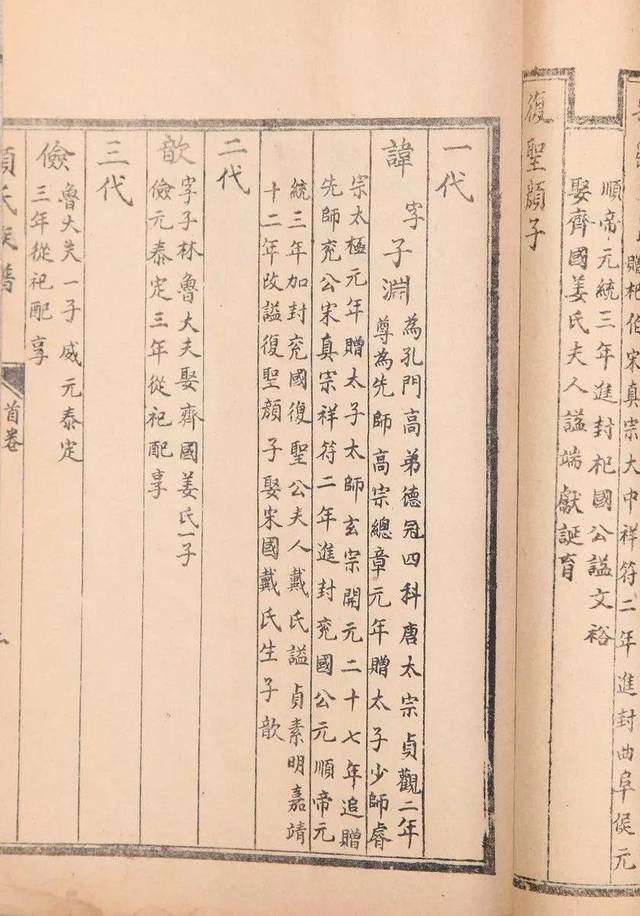 贈杞伯宋真宗大中祥符二年進封曲阜侯元
順帝元統三年進封杞國公謚文裕
娶齊國姜氏夫人謚端獻誕育
復聖顏子
一代
諱 字子淵 為孔門高弟德冠四科唐太宗貞觀二年
尊為先師高宗總章元年贈太子少師睿
宗太極元年贈太子太師玄宗開元二十七年追贈
先師兗公宋真宗祥符二年進封兗國公元順帝元
統三年加封兗國復聖公夫人戴氏謚貞素明嘉靖
十二年改謚復聖顏子娶宋國戴氏生子歆
二代
歆 字子林魯大夫娶齊國姜氏一子
儉元泰定三年從祀配享
三代
儉 魯大夫一子威元泰定
三年從祀配享
顏氏族譜 首卷